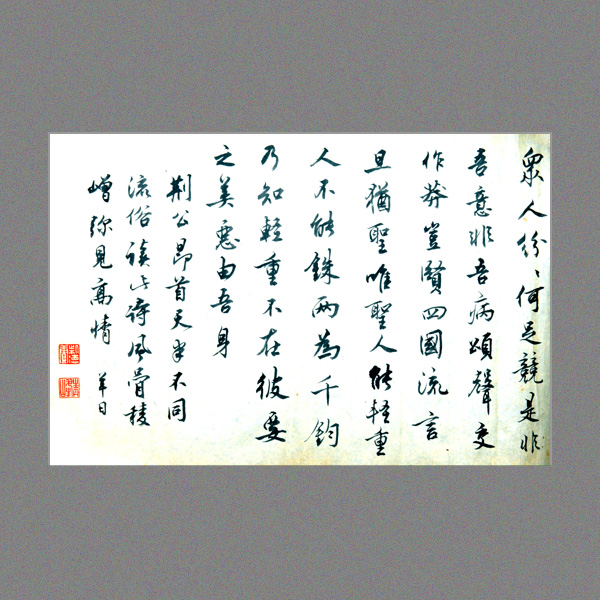 衆人紛〻何足競是非
吾意非吾病頌聲交
作莽豈賢四國流言
旦猶聖唯聖人能軽重
人不能銖两為千鈞
乃知輕重不在彼要
之美惡由吾身
荆公昂首天半不同
流俗讀此詩風骨稜
嶒弥見高情 羊日